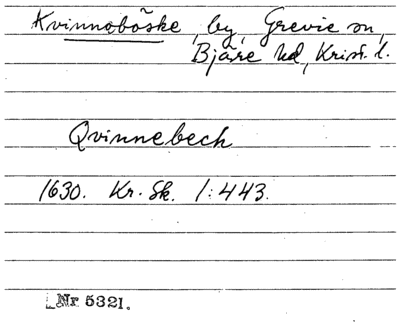 Kvinneböske, by, Grevie sn,
Bjäre hd, Krist. l.
Qvinnebech
1630. Kr. Sk. 1:443.
Nr 5321.